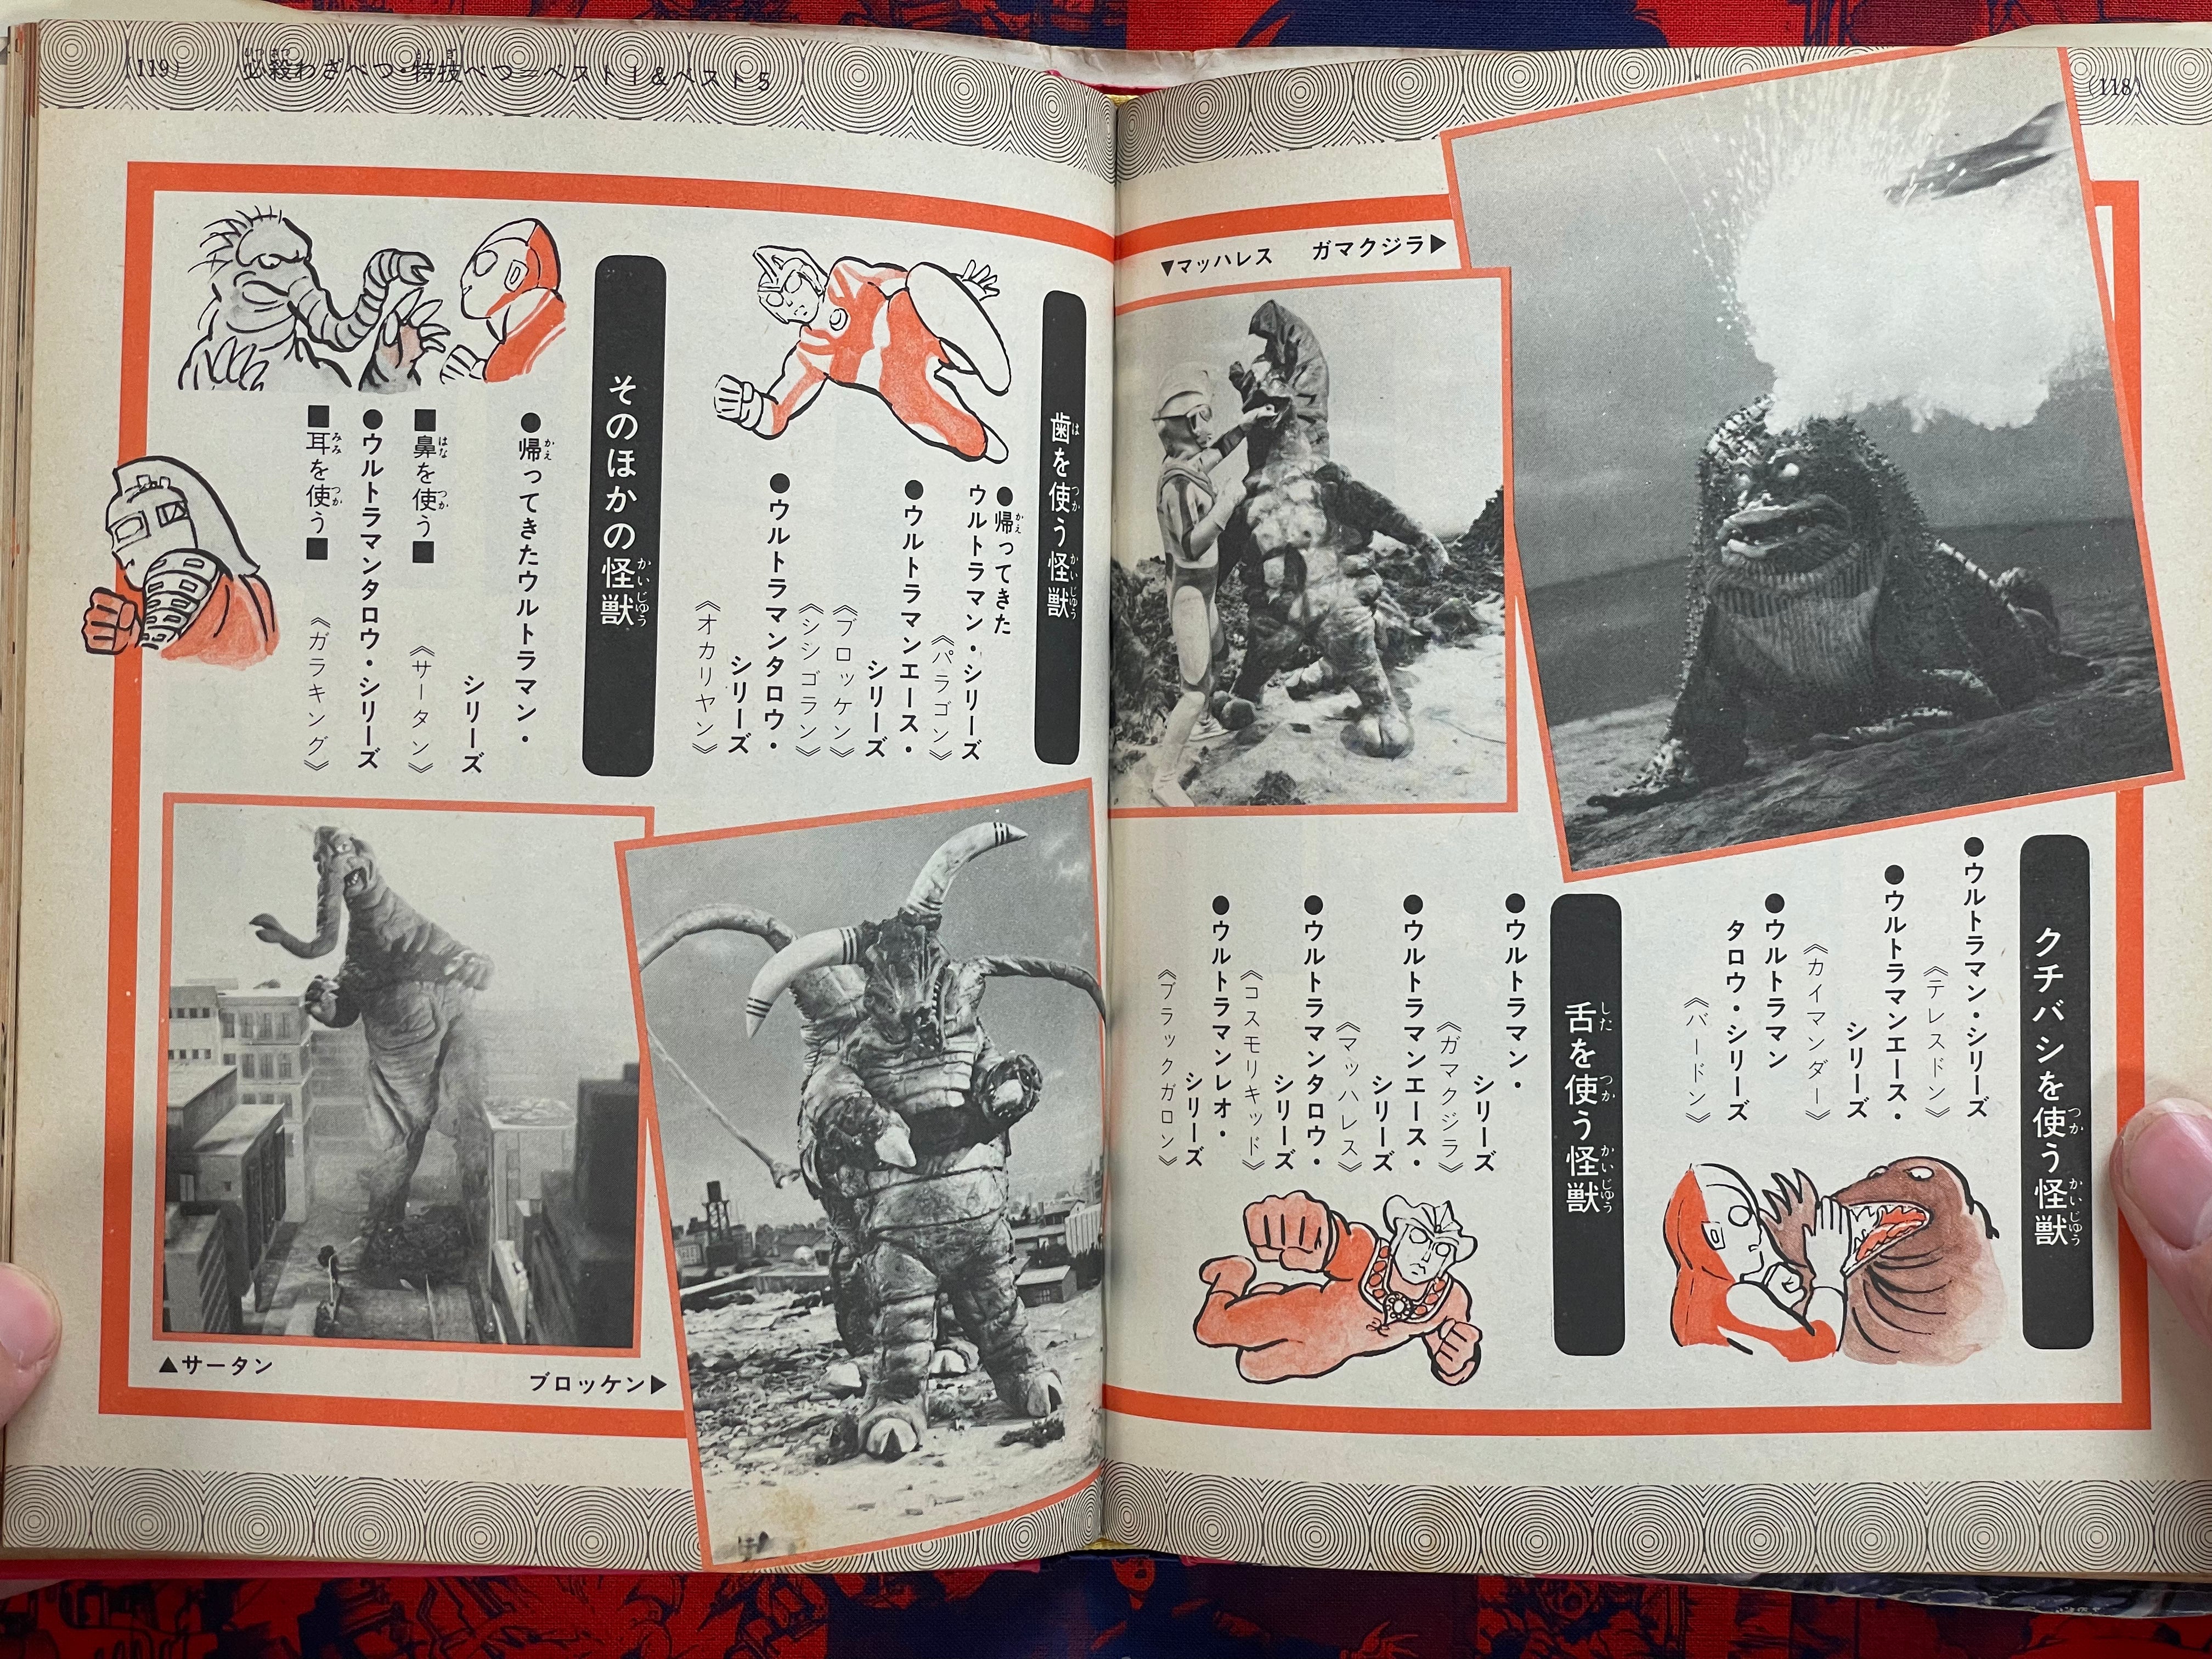 (118)
ガマクジラ▶
▼マッハレス
クチバシを使う怪獣
●ウルトラマン・シリーズ
《テレスドン》
●ウルトラマンエース・
シリーズ
《カイマンダー》
●ウルトラマン
タロウ・シリーズ
《バードン》
舌を使う怪獣
●ウルトラマン・
シリーズ
《ガマクジラ》
●ウルトラマンエース・
シリーズ
《マッハレス》
●ウルトラマンタロウ・
シリーズ
《コスモリキッド》
●ウルトラマンレオ・
シリーズ
《ブラックガロン》
(119)
必殺わざべつ・特技べつ=ベスト1&ベスト5
歯を使う怪獣
●帰ってきた
ウルトラマン・シリーズ
《パラゴン》
●ウルトラマンエース・
シリーズ
《ブロッケン》
《シシゴラン》
●ウルトラマンタロウ・
シリーズ
《オカリヤン》
そのほかの怪獣
●帰ってきたウルトラマン・
シリーズ
■鼻を使う■
《サータン》
●ウルトラマンタロウ・シリーズ
■耳を使う■
《ガラキング》
▲サータン
ブロッケン▶